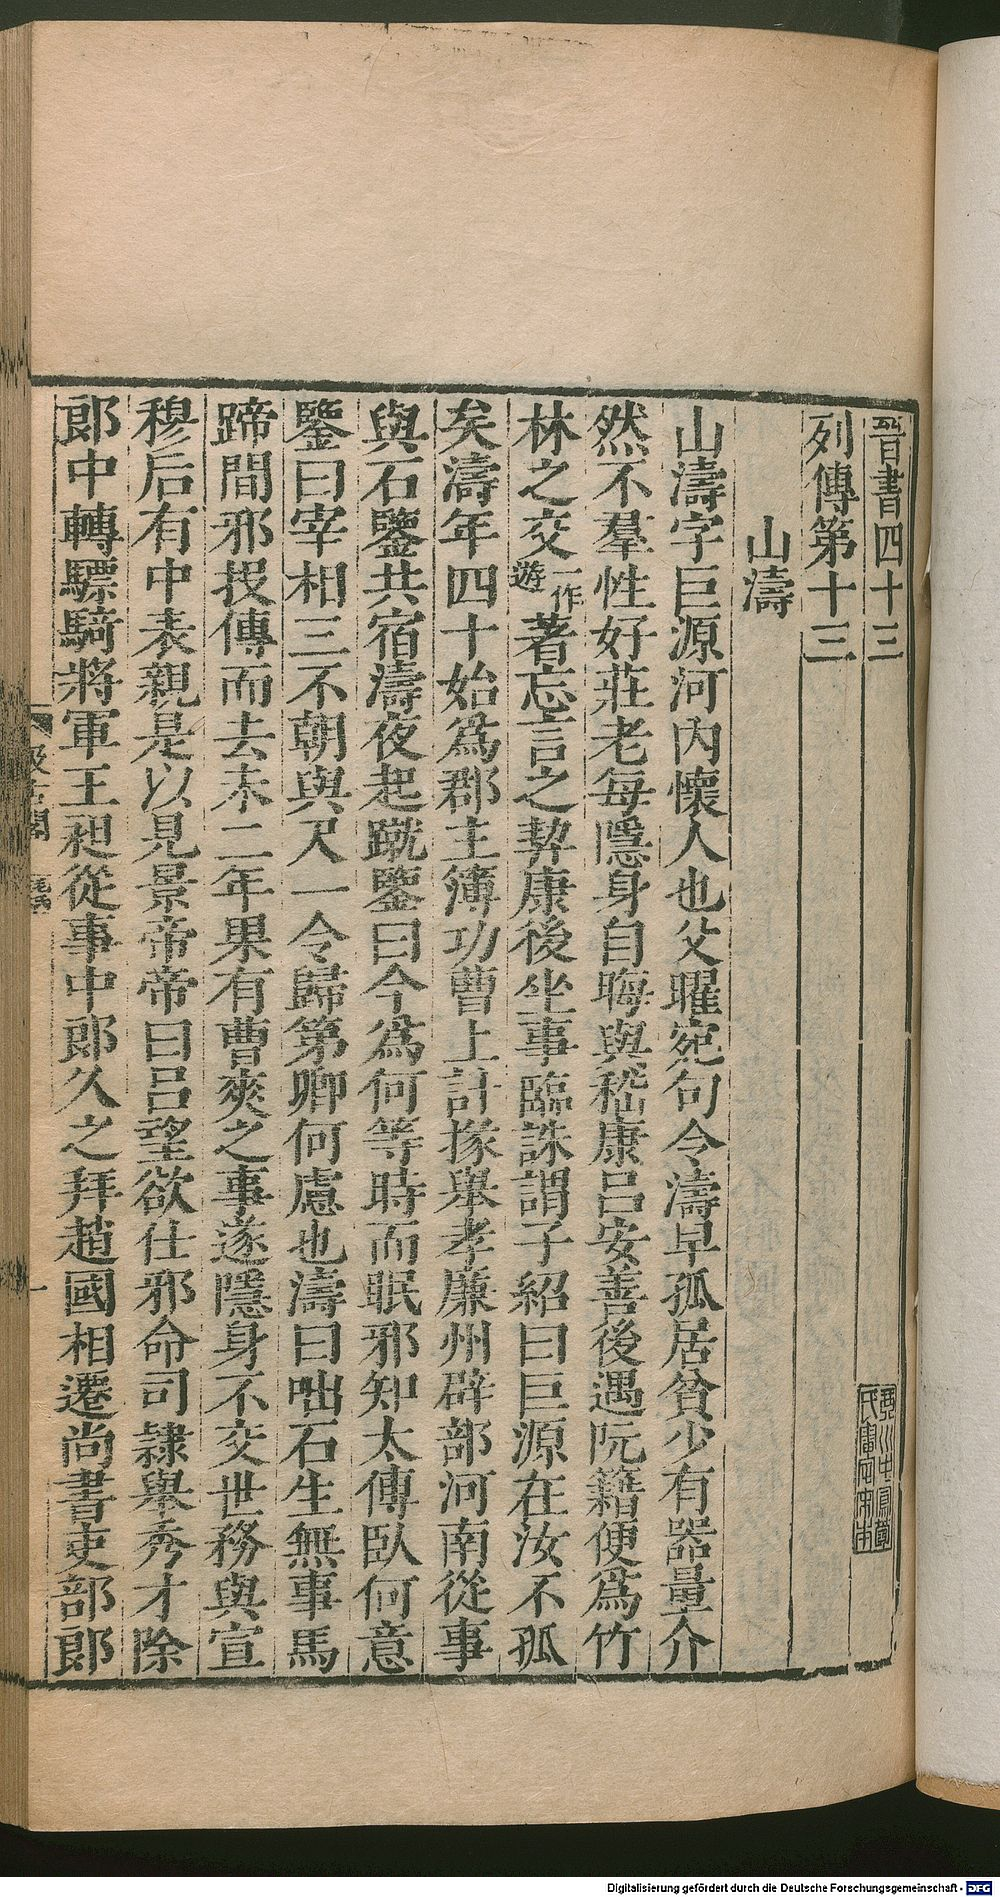 晉書四十三
列傳第十三
山濤
山濤字巨源河內懷人也父曜宛句令濤早孤居貧少有器量介
然不羣性好莊老每隱身自晦與嵇康呂安善後遇阮籍便爲竹
林之交一作遊著忘言之契康後坐事臨誅謂子紹曰巨源在汝不孤
矣濤年四十始爲郡主簿功曹上計掾舉孝廉州辟部河南從事
與石鑒共宿濤夜起蹴鑒曰今爲何等時而眠邪知太傅臥何意
鑒曰宰相三不朝與尺一令歸第卿何慮也濤曰咄石生無事馬
蹄間邪投傳而去未二年果有曹爽之事遂隱身不交世務與宣
穆后有中表親是以見景帝帝曰呂望欲仕邪命司隸舉秀才除
郎中轉驃騎將軍王昶從事中郎久之拜趙國相遷尚書吏部郎
Digitalisierung gefördert durch die Deutsche Forschungsgemeinschaft - DFG